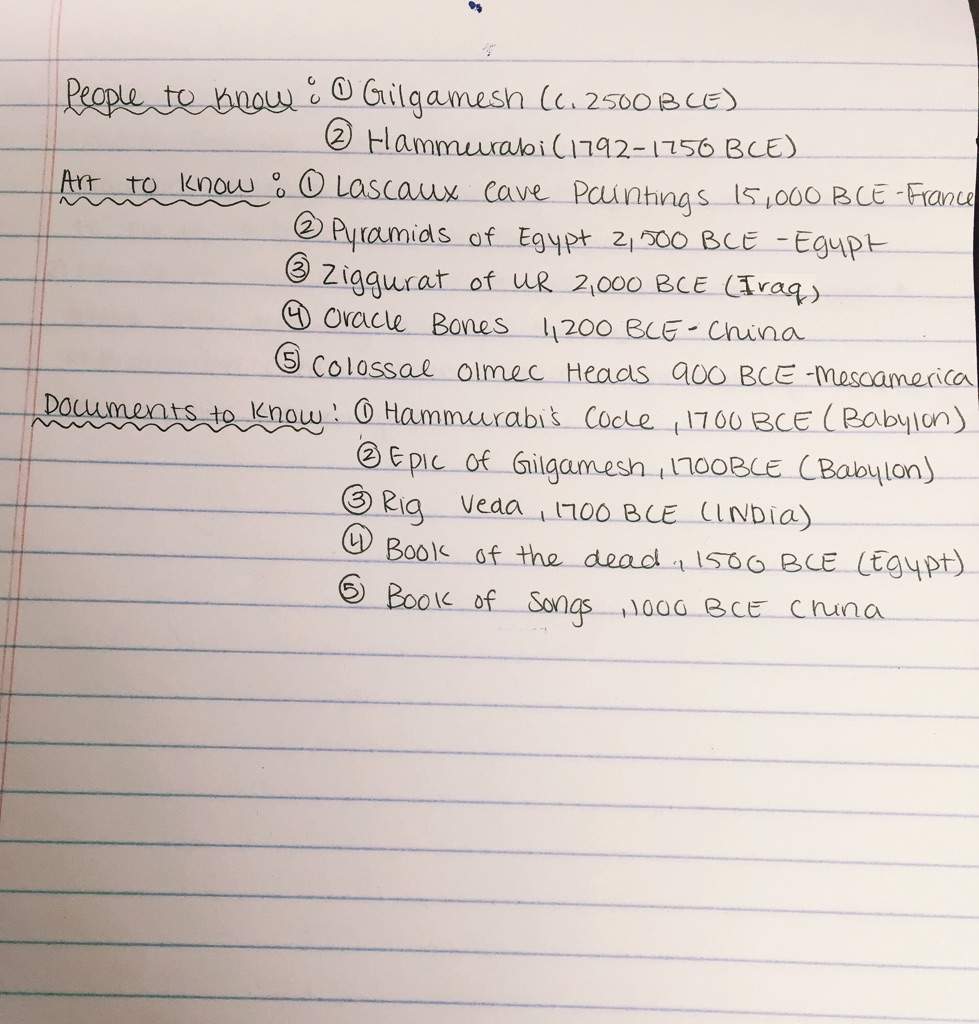 People to Know: ① Gilgamesh (c. 2500 BCE)
② Hammurabi (1792-1750 BCE)
Art to Know: ① Lascaux Cave Paintings 15,000 BCE - France
② Pyramids of Egypt 2,500 BCE - Egypt
③ Ziggurat of UR 2,000 BCE (Iraq)
④ Oracle Bones 1,200 BCE - China
⑤ Colossal Olmec Heads 900 BCE - Mesoamerica
Documents to Know: ① Hammurabi's Code, 1700 BCE (Babylon)
② Epic of Gilgamesh, 1700 BCE (Babylon)
③ Rig Veda, 1700 BCE (INDia)
④ Book of the dead, 1500 BCE (Egypt)
⑤ Book of Songs, 1000 BCE China